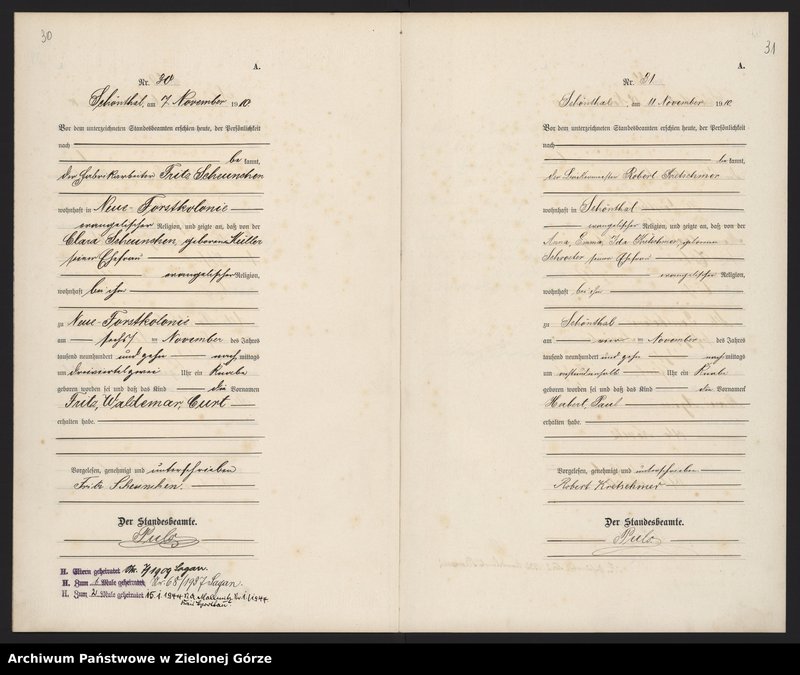 30
A.
Nr. 30
Schönthal, am 7. November 1910
Vor dem unterzeichneten Standesbeamten erschien heute, der Persönlichkeit
nach
be kannt,
der Fabrikarbeiter Fritz Scheunchen
wohnhaft in Neue-Forstkolonie
evangelischer Religion, und zeigte an, daß von der
Clara Scheunchen, geborene Müller
seiner Ehefrau
evangelischer Religion,
wohnhaft bei ihm
zu Neue-Forstkolonie
am sechs im November des Jahres
tausend neunhundert und zehn nach mittags
um dreiviertelzwei Uhr ein Knabe
geboren worden sei und daß das Kind die Vornamen
Fritz, Waldemar, Curt
erhalten habe.
Vorgelesen, genehmigt und unterschrieben
Fritz Scheunchen.
Der Standesbeamte.
H. Eltern geheiratet Nr. 7/1909 Sagan.
H. Zum 1. Male geheiratet Nr. 68/1937 Sagan.
H. Zum 2. Male geheiratet 15.1.1944 Nr. 1/1944
31
A.
Nr. 31
Schönthal, am 11. November 1910
Vor dem unterzeichneten Standesbeamten erschien heute, der Persönlichkeit
nach
be kannt,
der Robert Kretschmer
wohnhaft in Schönthal
evangelischer Religion, und zeigte an, daß von der
Anna, Emma, Ida Kretschmer, geborenen
Schroeter seiner Ehefrau
evangelischer Religion,
wohnhaft bei ihm
zu Schönthal
am vier im November des Jahres
tausend neunhundert und zehn nach mittags
um Uhr ein Knabe
geboren worden sei und daß das Kind die Vornamen
Hubert, Paul
erhalten habe.
Vorgelesen, genehmigt und unterschrieben
Robert Kretschmer
Der Standesbeamte.
Archiwum Państwowe w Zielonej Górze